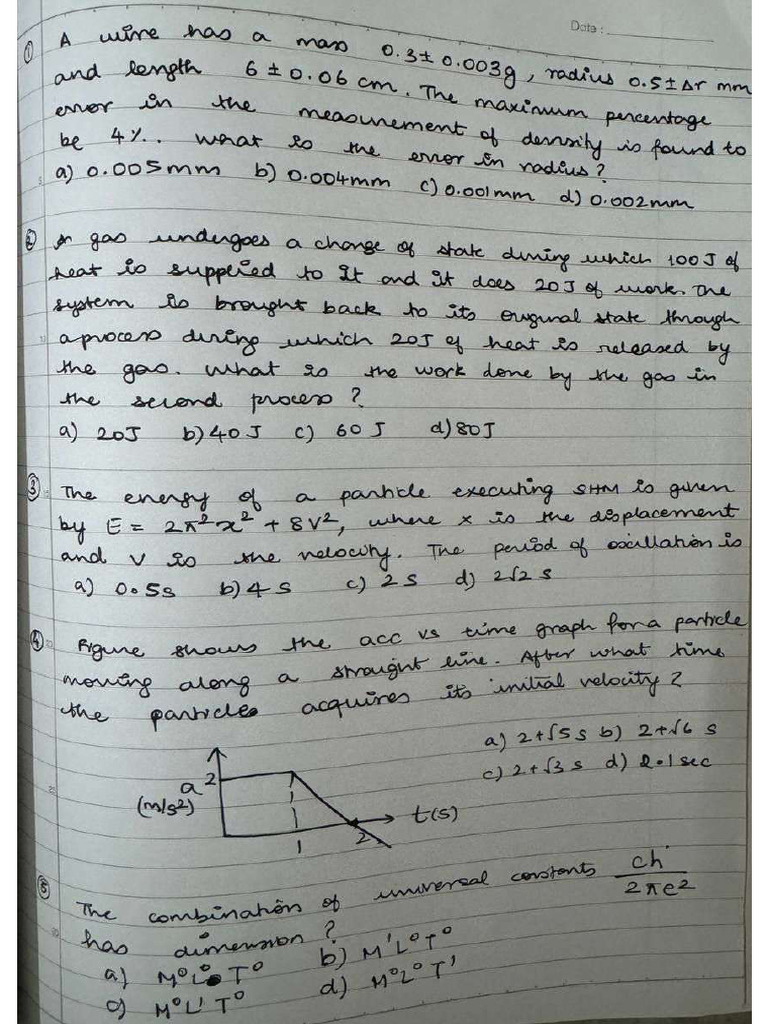 Date :
① A wire has a mass 0.3 ± 0.003g, radius 0.5 ± Δr mm
and length 6 ± 0.06 cm. The maximum percentage
error in the measurement of density is found to
be 4%. What is the error in radius?
a) 0.005mm b) 0.004mm c) 0.001mm d) 0.002mm
② A gas undergoes a change of state during which 100J of
heat is supplied to it and it does 20J of work. The
system is brought back to its original state through
a process during which 20J of heat is released by
the gas. What is the work done by the gas in
the second process?
a) 20J b) 40J c) 60J d) 80J
③ The energy of a particle executing SHM is given
by E = 2π²x² + 8V², where x is the displacement
and V is the velocity. The period of oscillation is
a) 0.5s b) 4 s c) 2 s d) 2√2 s
④ Figure shows the acc vs time graph for a particle
moving along a straight line. After what time
the particle acquires its initial velocity?
a) 2+√5 s b) 2+√6 s
c) 2+√3 s d) 2.1 sec
a 2
(m/s²)
t(s)
1 2
⑤ The combination of universal constants ch/2πe²
has dimension?
a) M⁰L⁰T⁰ b) M¹L⁰T⁰
c) M⁰L¹T⁰ d) M⁰L⁰T¹